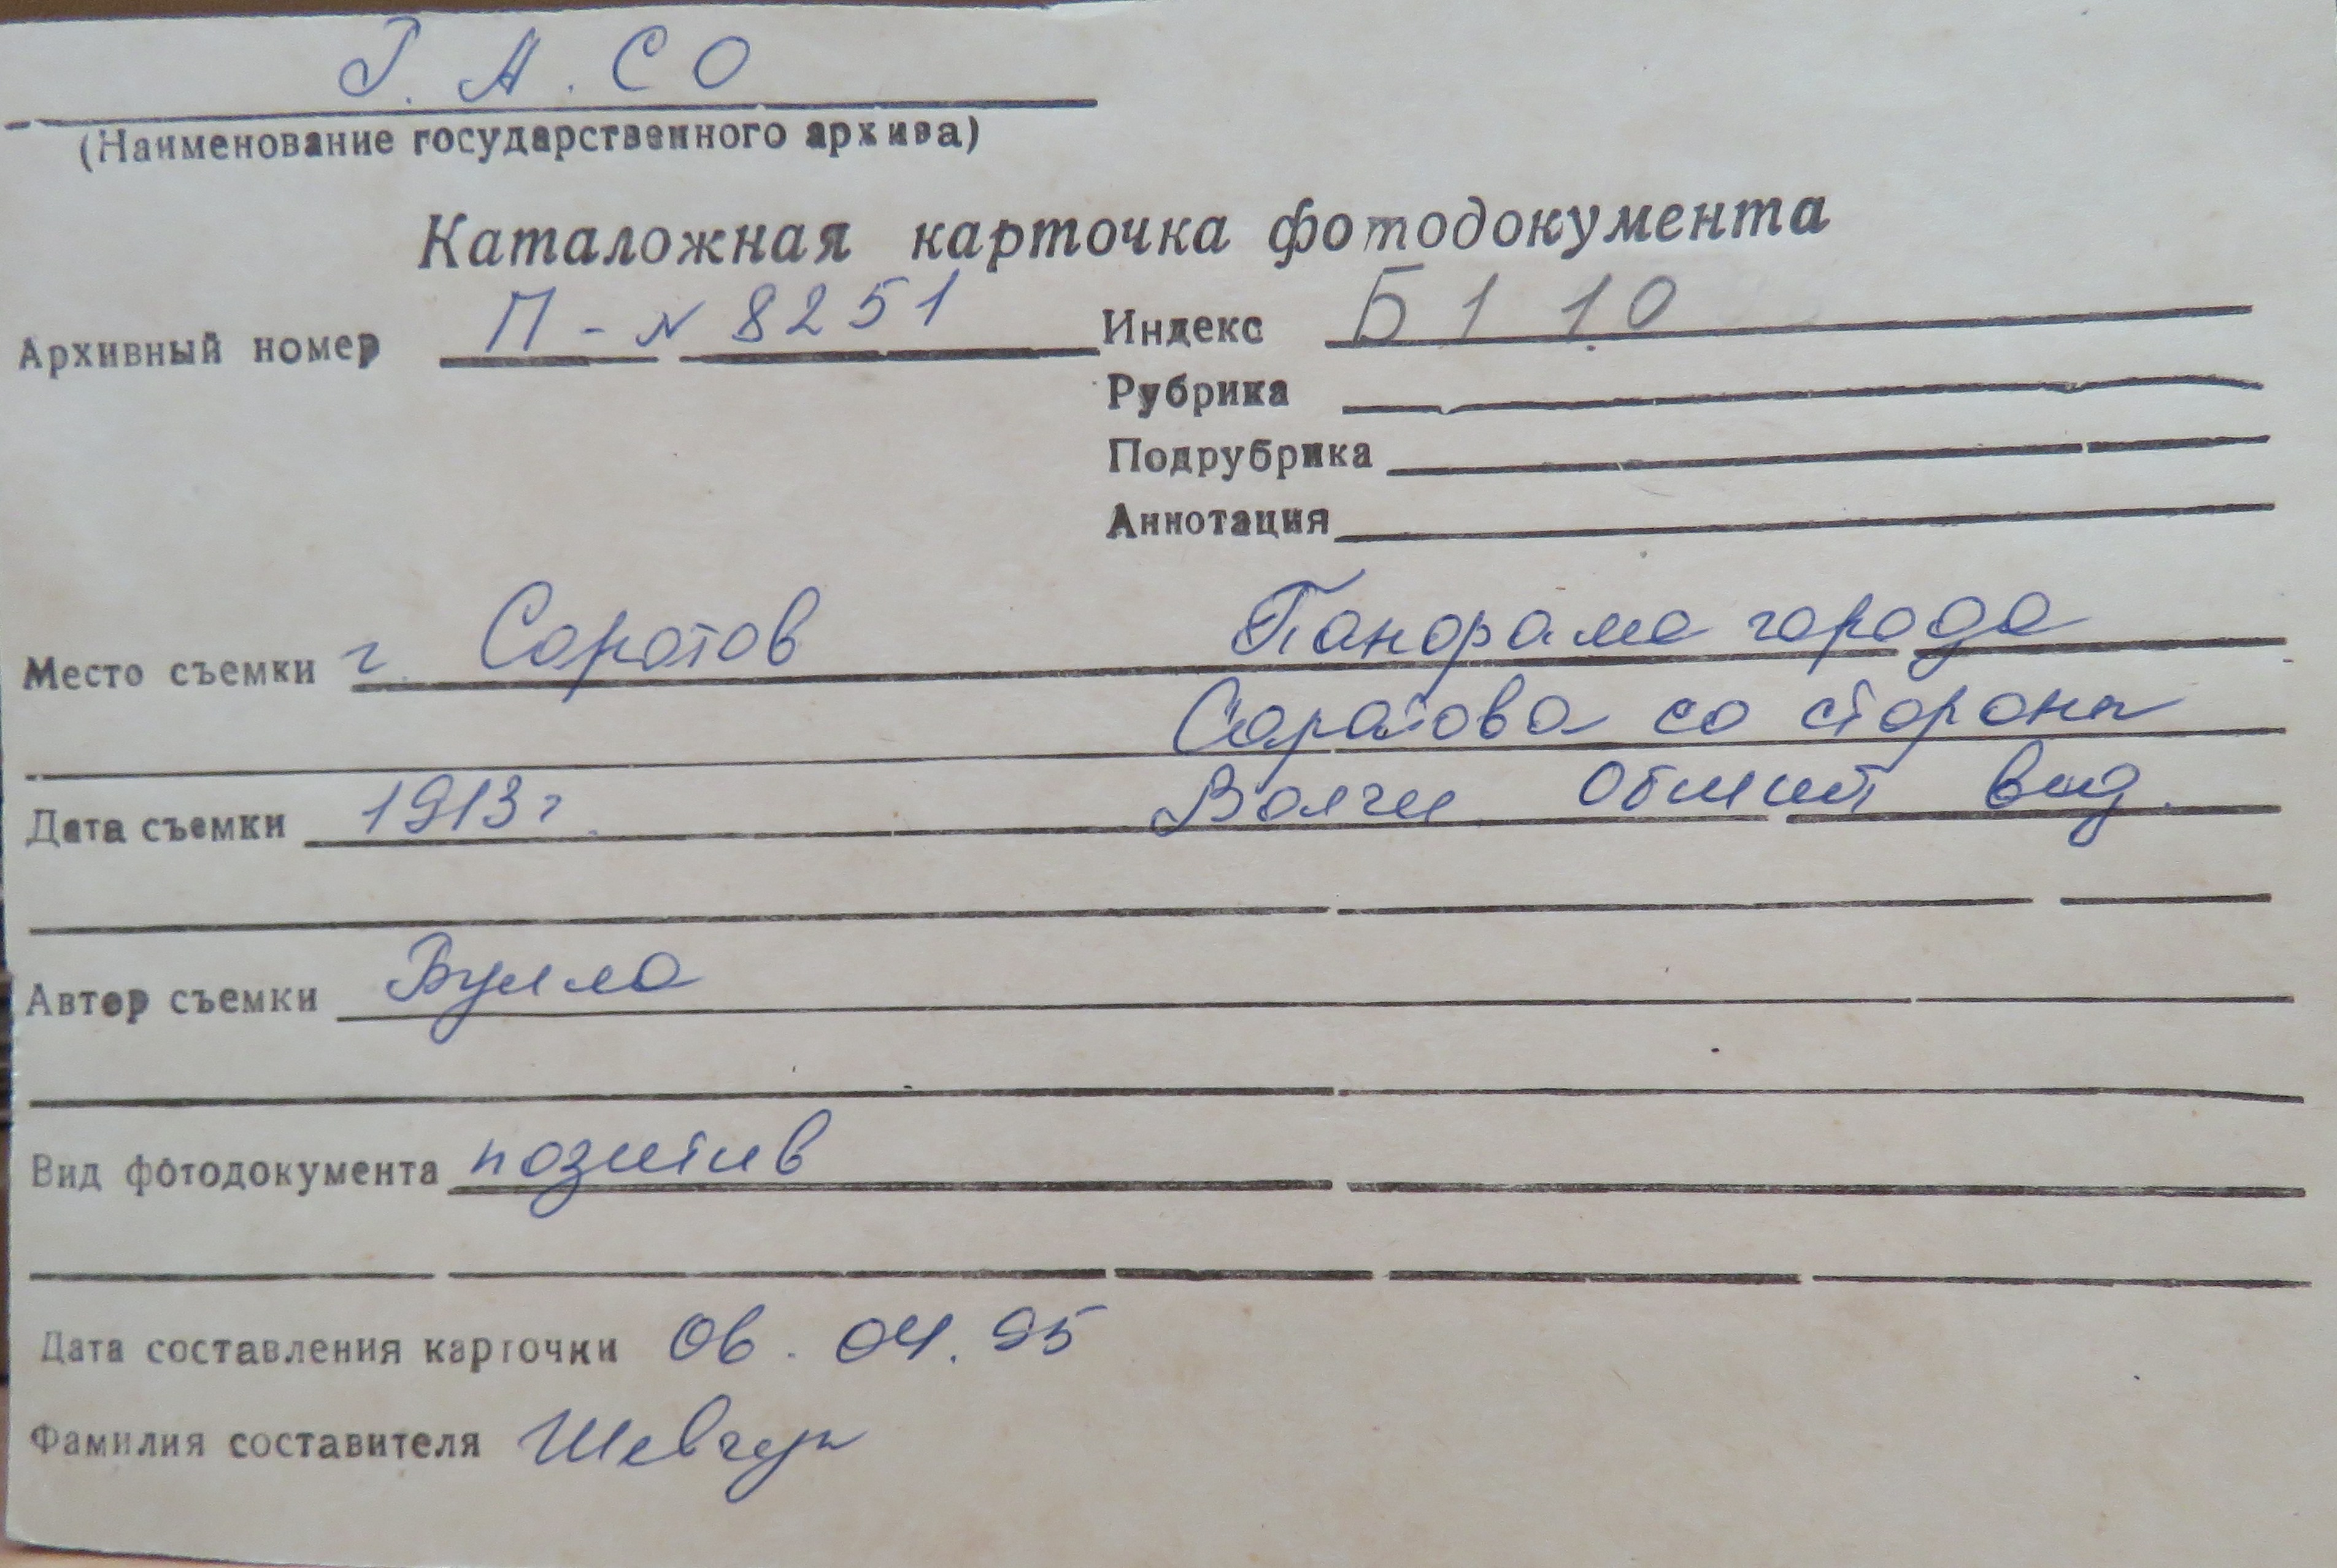 Г. А. СО
(Наименование государственного архива)
Каталожная карточка фотодокумента
Архивный номер П - N 8251 Индекс Б 1 1.0
Рубрика
Подрубрика
Аннотация
Место съемки г. Саратов Панорама города
Саратова со стороны
Дата съемки 1913 г. Волги. Общий вид.
Автор съемки Булла
Вид фотодокумента позитив
Дата составления карточки 06. 04. 95
Фамилия составителя Шевчук